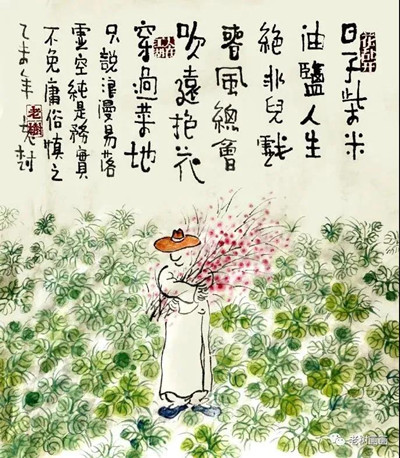 日子柴米
油鹽人生
絕非兒戲
春風總會
吹遠抱花
穿過菜地
只說浪漫易落
虛空純是務實
不免庸俗慎之
乙未年
老樹
老树画画